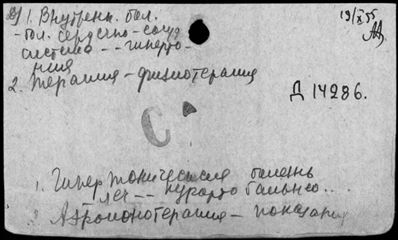 1. Внутрен. бол.
- бол. сердечно-сосуд
система -- гиперто-
ния
2. Терапия - физиотерапия
19/X 55
Д 14286.
С
1. Гипертоническая болезнь
леч -- курорто бальнео...
Аэроионотерапия - показания